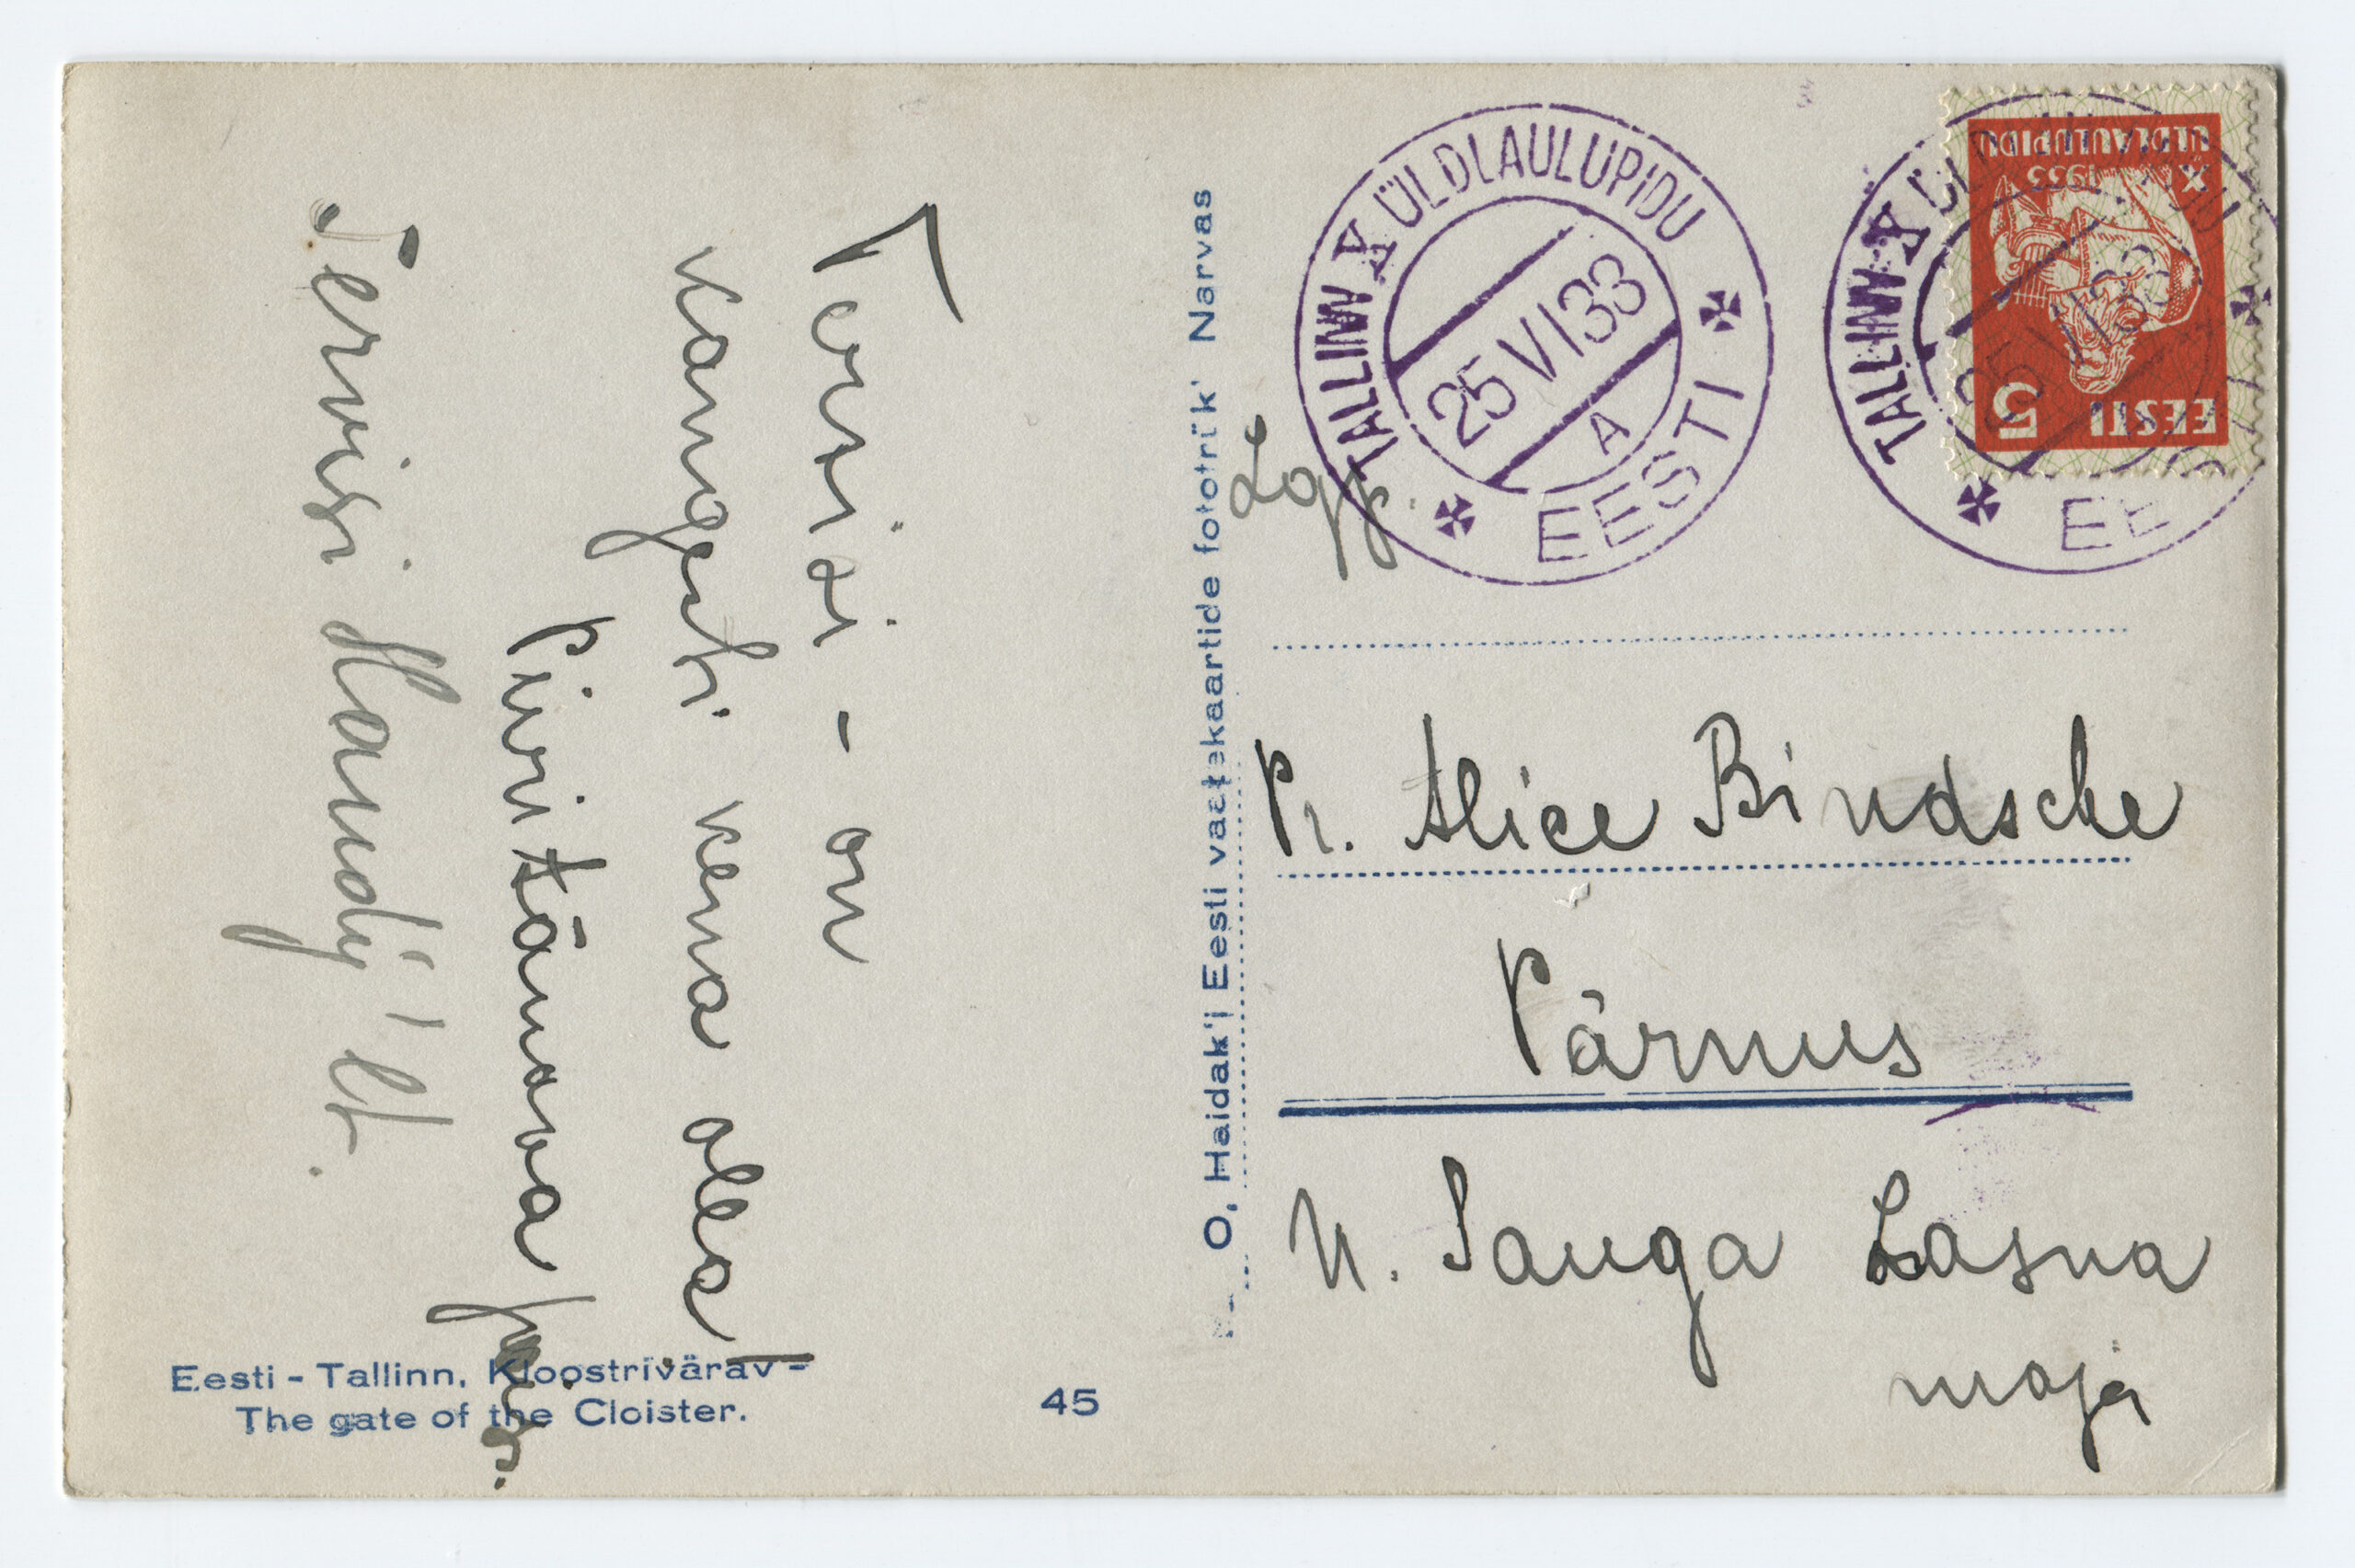 Tervisi - on
kangesti kena olla
Pirita rannas
Tervisi
Eesti - Tallinn, Kloostrivärav -
The gate of the Cloister.
45
O. Haidak'i Eesti vaatekaartide fototrük' Narvas
TALLINN X ÜLDLAULUPIDU
25 VI 33
A
EESTI
TALLINN X ÜLDLAULUPIDU
25 VI 33
EESTI
X 1933
ÜLDLAULUPIDU
EESTI 5
Lgp.
Pr. Alice Bindsche
Pärnus
U. Sauga Lasna
maja